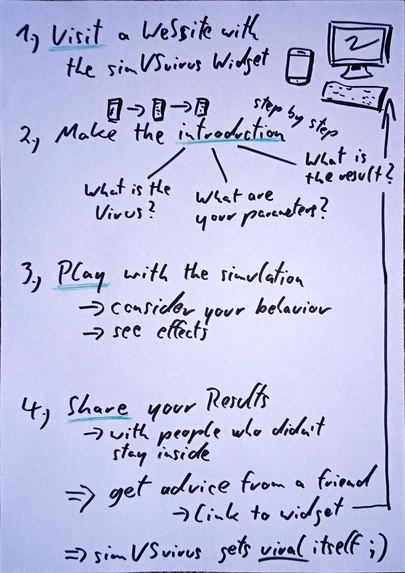 1.) Visit a Website with
the simVSvirus Widget
step by step
2.) Make the introduction
What is the
Virus?
What are
your parameters?
What is
the result?
3.) Play with the simulation
→ consider your behavior
→ see effects
4.) Share your Results
→ with people who didn't
stay inside
⇒ get advice from a friend
→ Link to widget
⇒ simVSvirus gets viral itself ;)